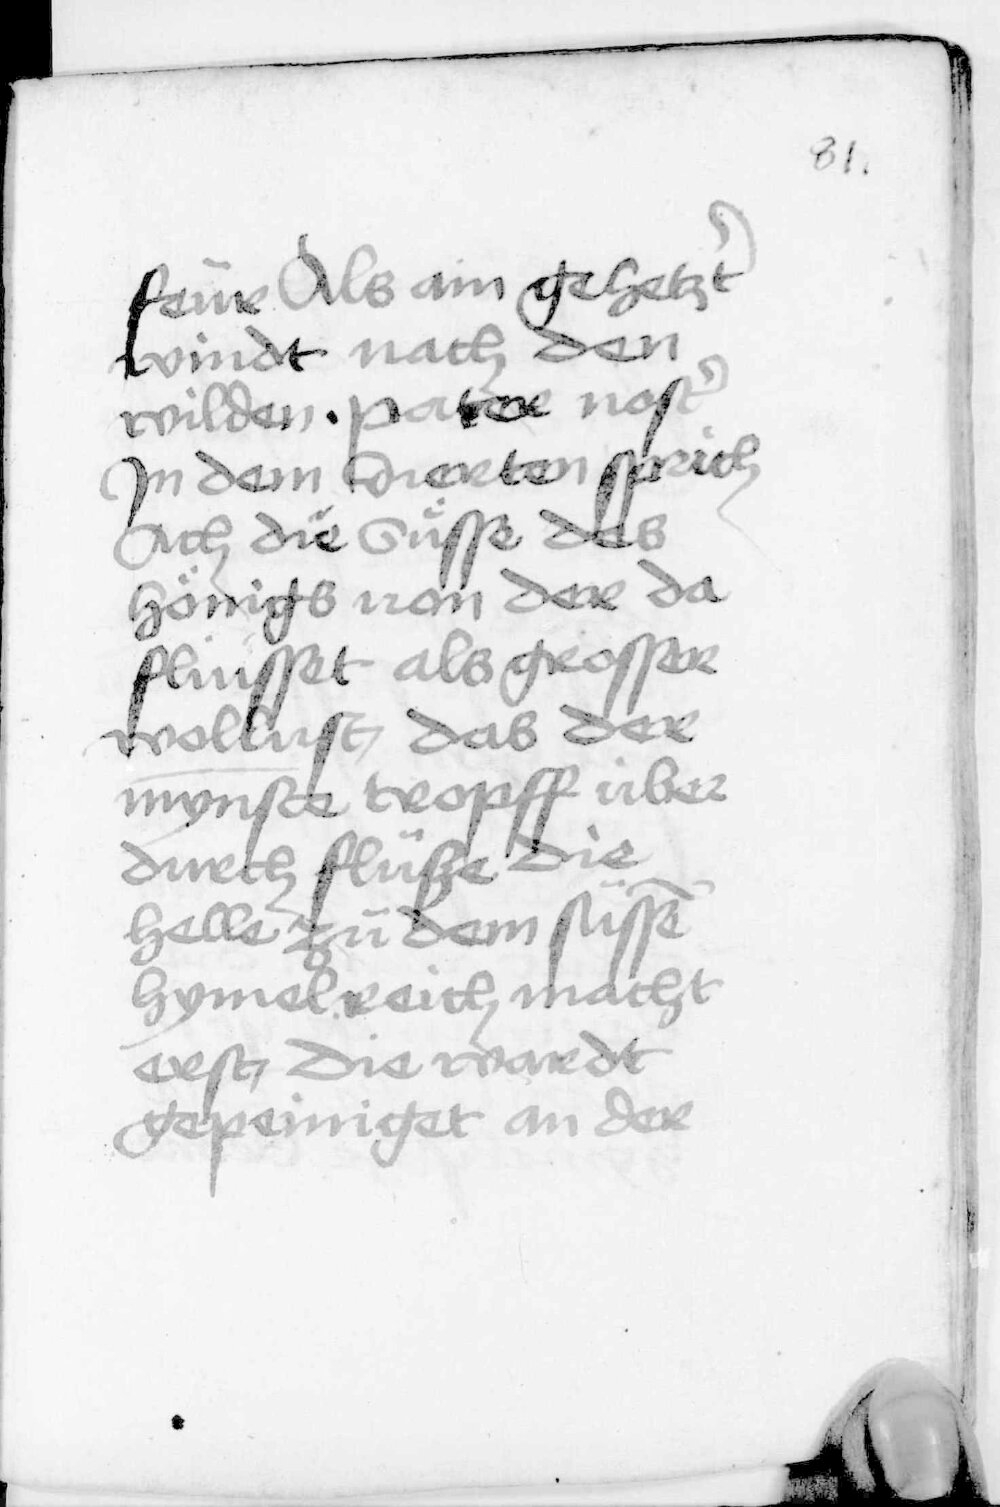 81.
feür Als ain gehetzt͛
windt nach den
wilden. pater nost͛
In dem vierten sprich
Ach die Süsse des
hönigs von der da
fliusset als grosser
wollust, das der
mynste tropff über
durch flüße die
helle zü dem süssē
hymelreich macht
erst, die wardt
gepeiniget an der